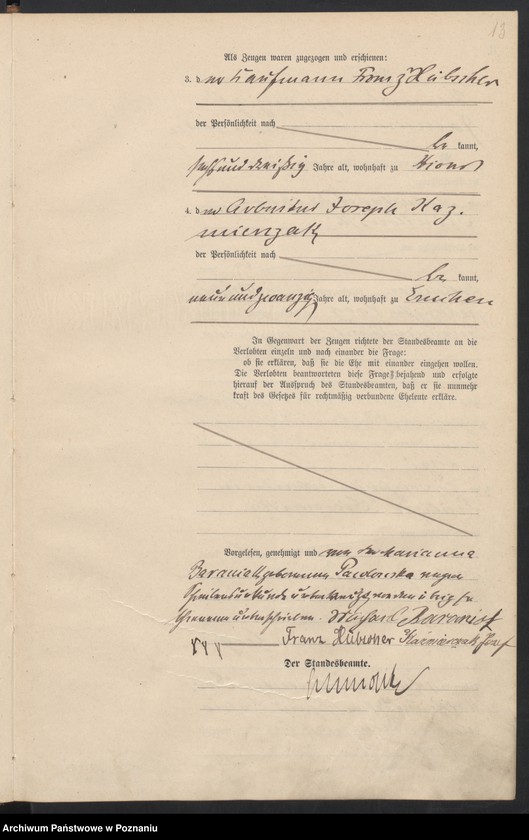 13
Als Zeugen waren zugezogen und erschienen:
3. der Kaufmann Franz Hübscher
der Persönlichkeit nach
be kannt,
sechsunddreißig Jahre alt, wohnhaft zu Xions
4. der Arbeiter Joseph Kaz-
mierzak
der Persönlichkeit nach
be kannt,
neunundzwanzig Jahre alt, wohnhaft zu
In Gegenwart der Zeugen richtete der Standesbeamte an die
Verlobten einzeln und nach einander die Frage:
ob sie erklären, daß sie die Ehe mit einander eingehen wollen.
Die Verlobten beantworteten diese Frage bejahend und erfolgte
hierauf der Ausspruch des Standesbeamten, daß er sie nunmehr
kraft des Gesetzes für rechtmäßig verbundene Eheleute erkläre.
Vorgelesen, genehmigt und von der Marianna
Baraniak geborenen Pawlowska wegen
Schreibens unterkreuzt von den übrigen
unterschrieben. Michael Baraniak
Franz Hübscher Kaźmierzak Józef
Der Standesbeamte.
Archiwum Państwowe w Poznaniu